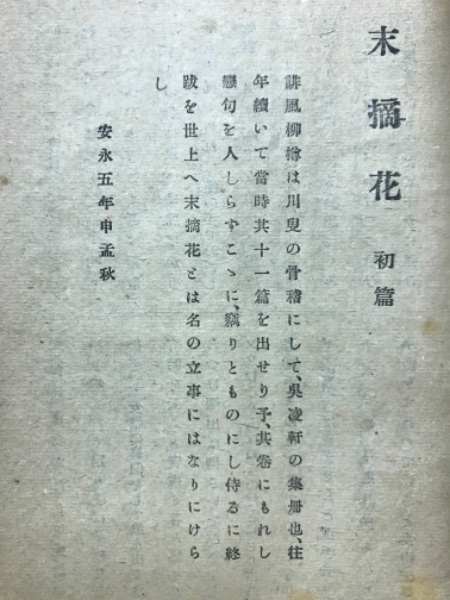 末摘花 初篇
誹風柳樽は川叟の骨稽にして、呉凌軒の集册也、往
年續いて當時其十一篇を出せり予、其卷にもれし
戀句を人しらずこゝに、竊りとものにし侍るに終
跋を世上へ末摘花とは名の立事にはなりにけら
し
安永五年申孟秋